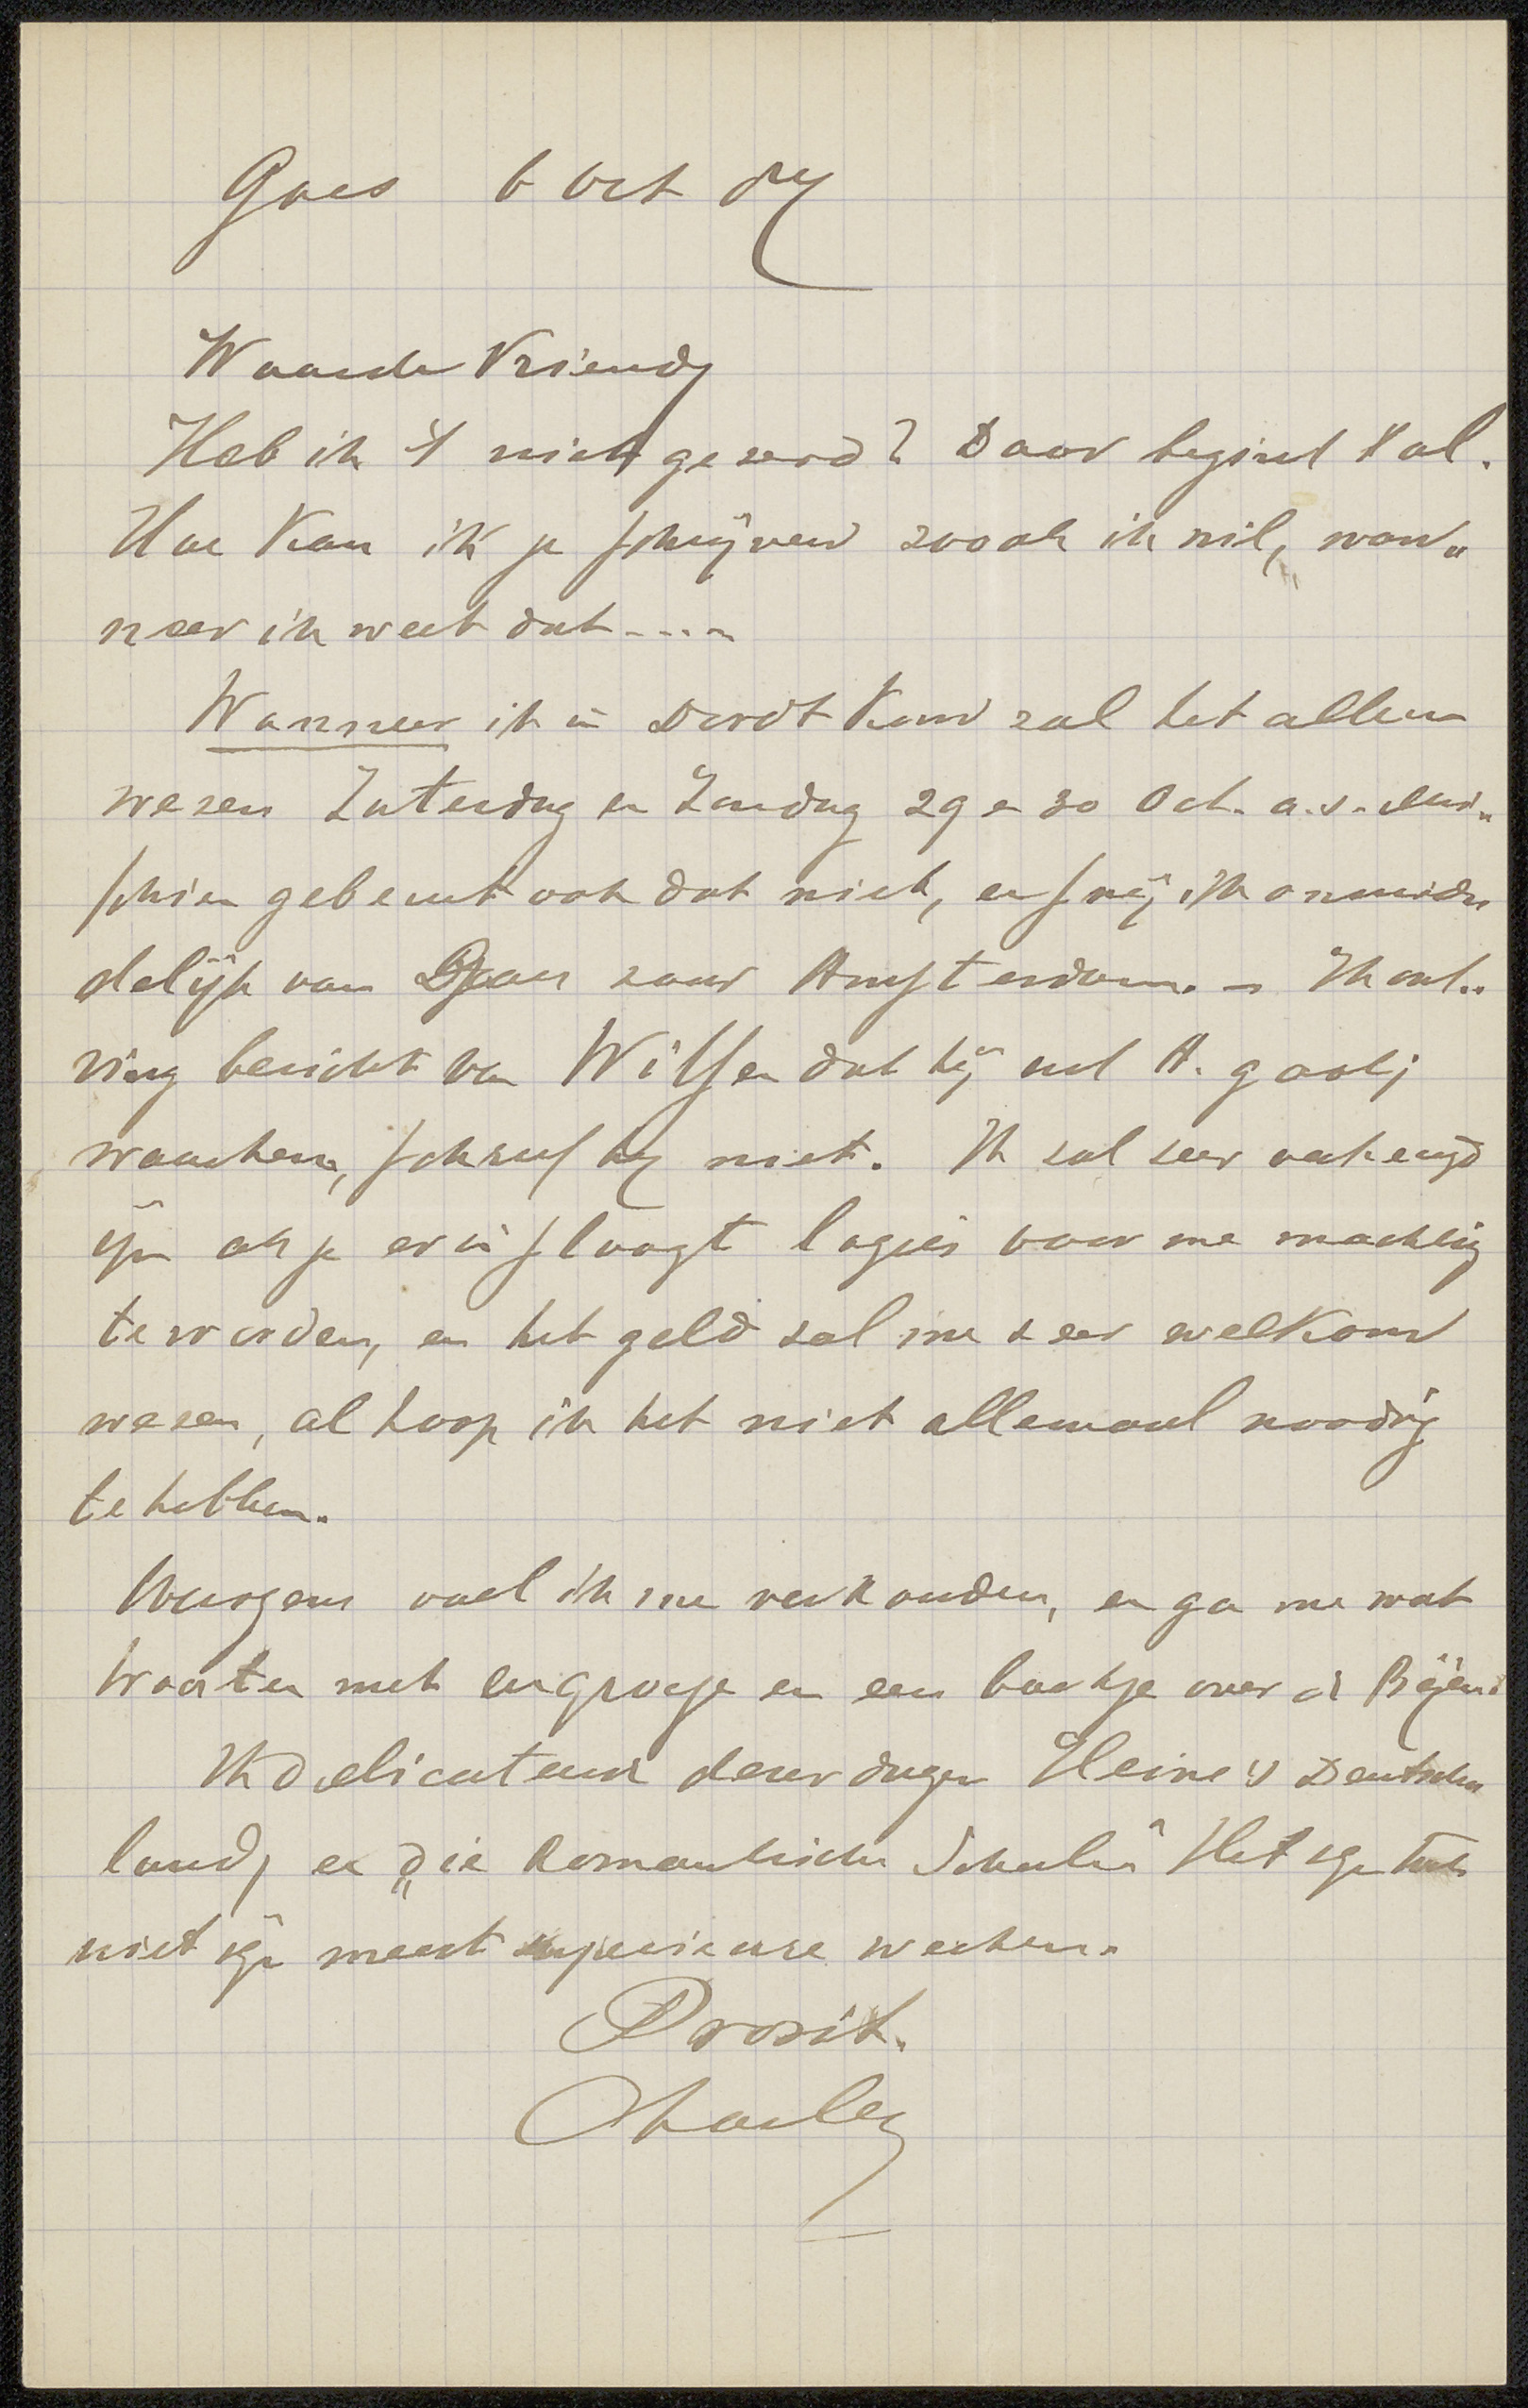 Goes 6 Oct 87
Waarde Vriend,
Heb ik 't niet gezeid? Daar begint 't al.
Hoe kan ik je schrijven zooals ik wil, wan„
neer ik weet dat ----
Wanneer ik in Dordt kom zal het alleen
wezen Zaterdag en Zondag 29 en 30 Oct. a.s. Mis„
schien gebeurt ook dat niet, en snij ik onmid„
delijk van Goes naar Amsterdam. – Ik ont„
ving bericht van Wilsen dat hij uit A. gaat;
waarheen, schreef hij niet. Ik zal zeer verheugd
zijn als je erin slaagt logies voor me machtig
te worden, en het geld zal me zeer welkom
wezen, al hoop ik het niet allemaal noodig
te hebben.
Overigens voel ik me verkouden, en ga me wat
warmen met een grogje en een boekje over de Bijen.
Ik delicateur dezer dagen Heine's Deutsch„
land, en „die Romantische Schule". Het zijn toch
niet zijn meest superieure werken.
Prosit.
Charley